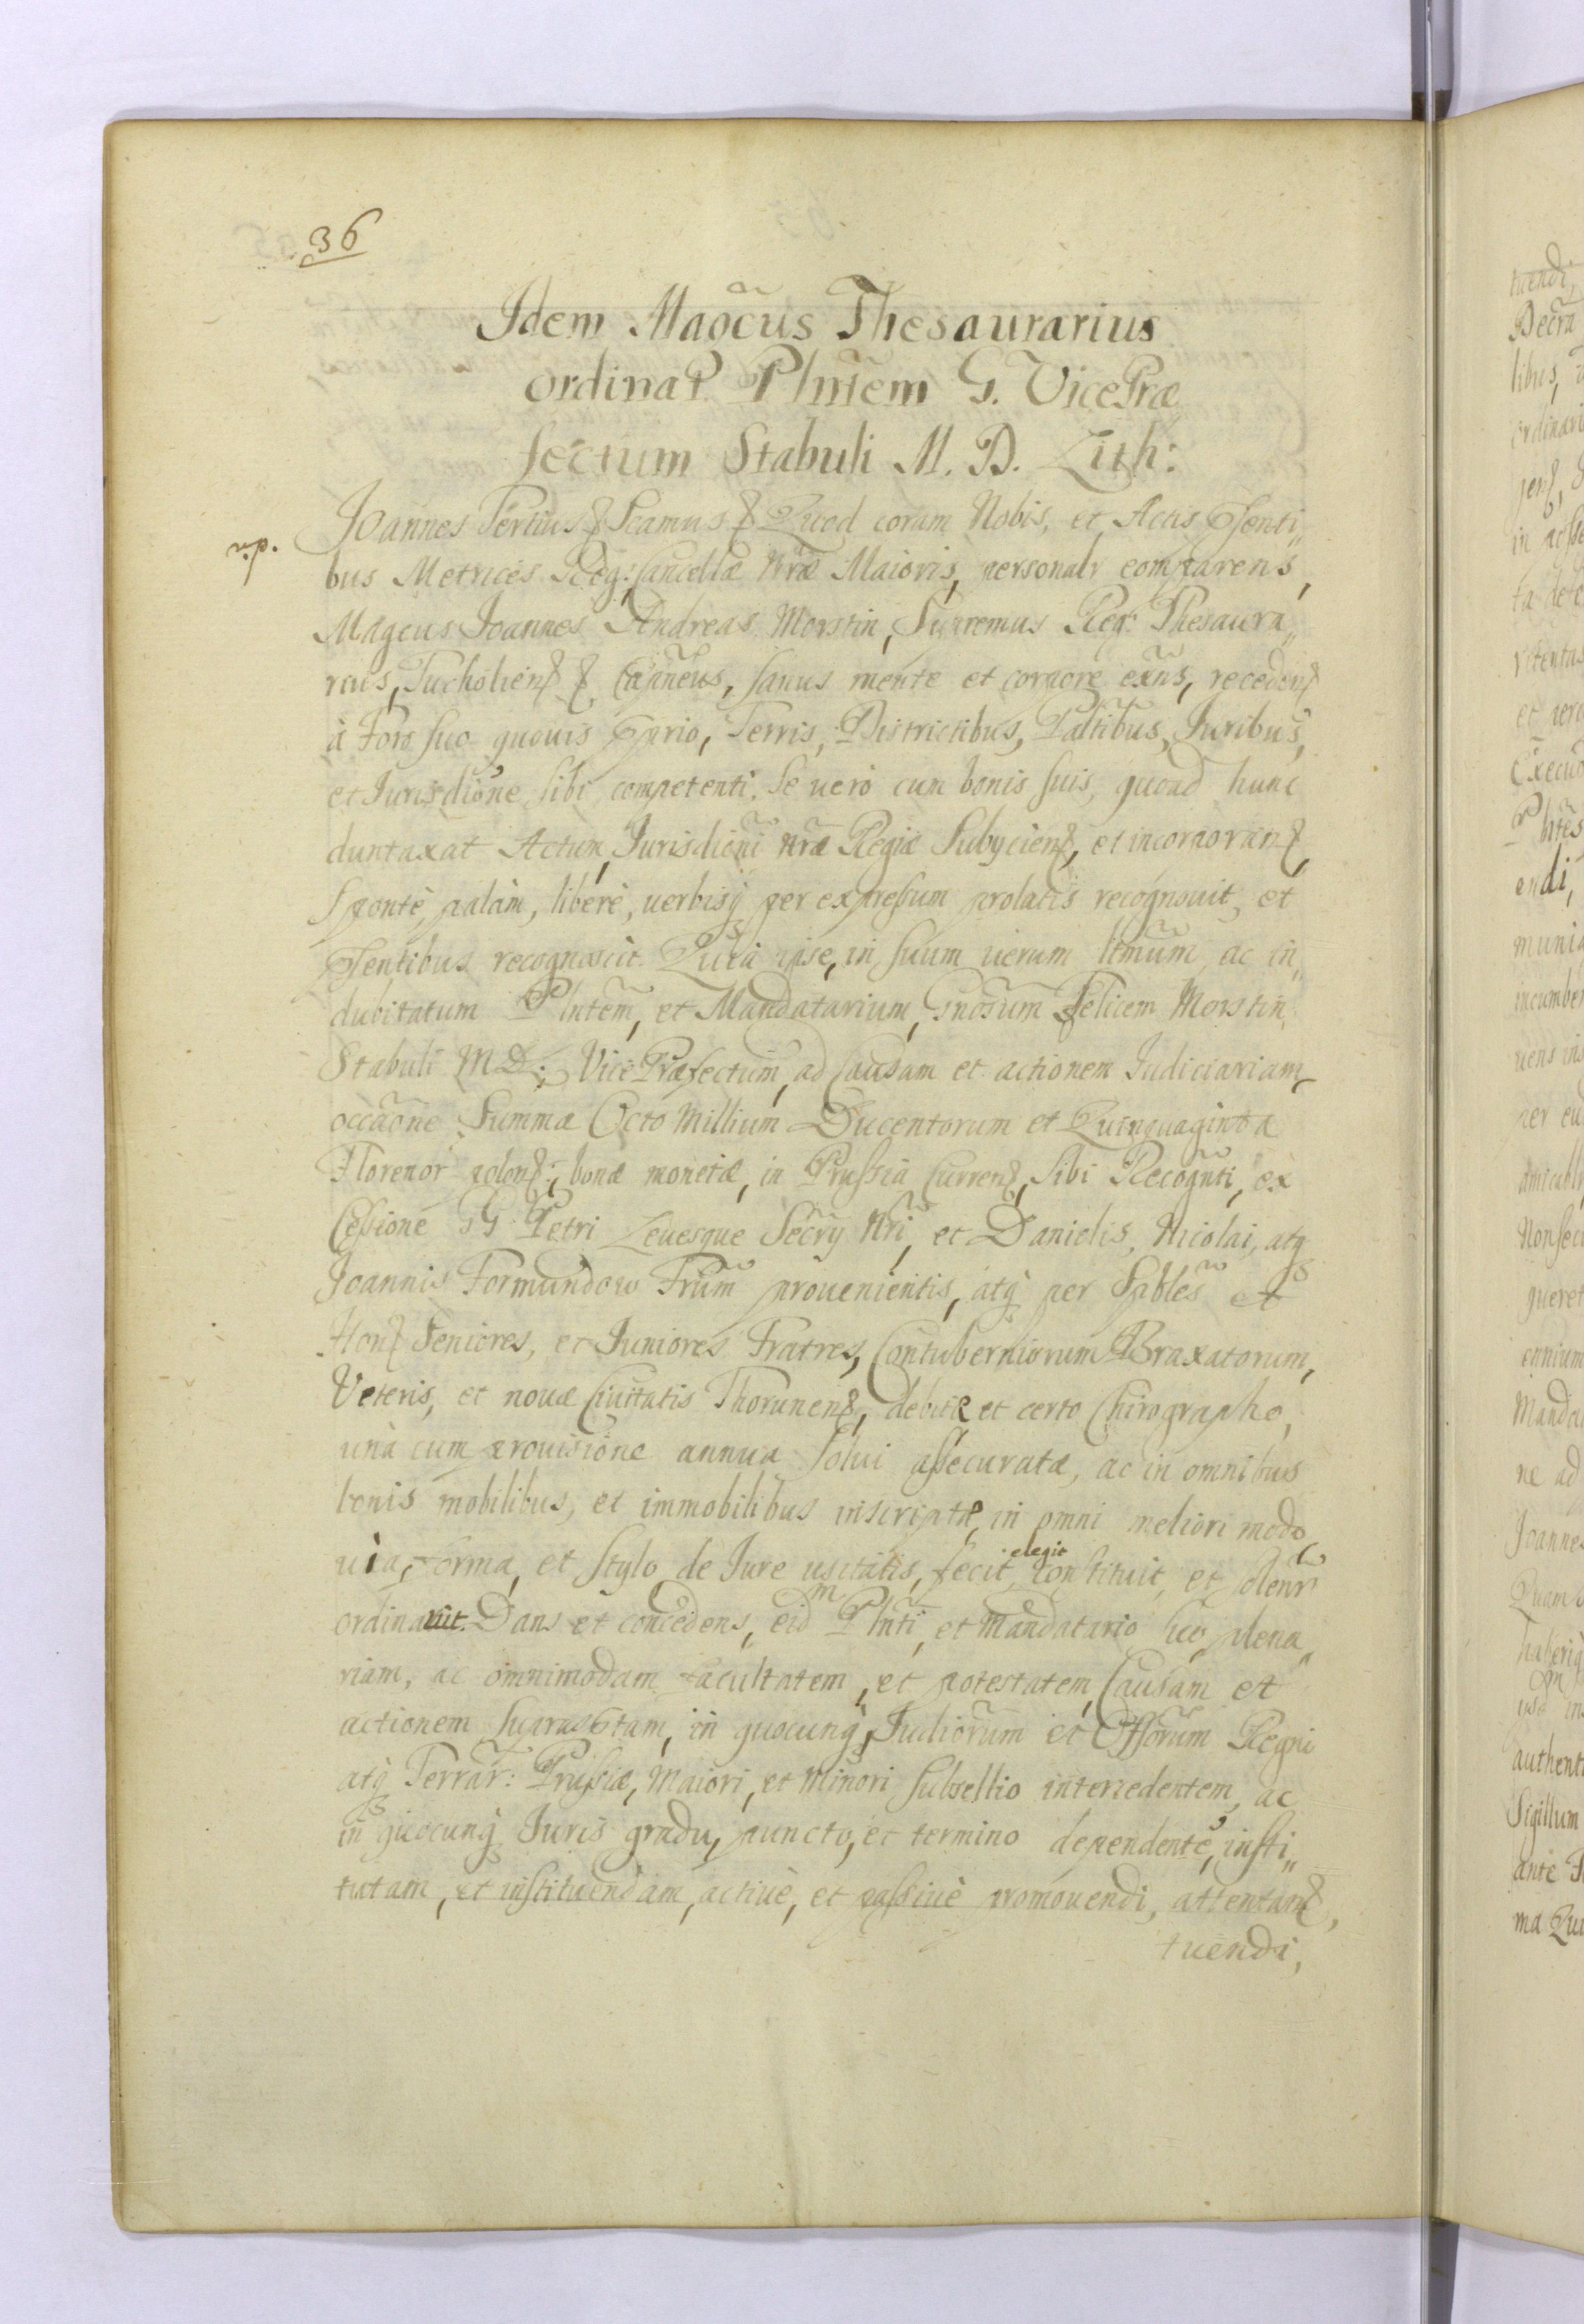 36
Idem Magcus Thesaurarius
ordinat Plntem G. VicePræ
fectum Stabuli M. D. Lith:
Joannes Tertius & Scamus & Quod coram Nobis, et Actis Psenti„
r. p.
bus Metrices Reg: Cancellæ Nræ Maioris, personalr comparens,
Magcus Joannes Andreas Morstin, Supremus Regni Thesaura„
rius, Tucholien & Capneus, sanus mente et corpore exns, receden
à Foro suo quouis Pprio, Terris, Districtibus, Paltibus, Juribus,
et Jurisdione, sibi competenti. Se verò cum bonis suis, quoad hunc
duntaxat Actum, Jurisdioni nræ Regiæ Subycien, et incorporan,
Spontè, palàm, liberè, uerbisq per expressum prolatis recognouit, et
Psentibus recognoscit. Quià ipse, in suum uerum ltmum, ac in„
dubitatum Plntem, et Mandatarium, Gnosum Felicem Morstin
Stabuli M D: L VicePræfectum, ad Causam et actionem Judiciariam
occaone Summæ Octo Millium Ducentorum et Quinquaginta
Florenor polon: bonæ monetæ, in Prussia Curren, sibi Recognti, ex
Cessione GG Petri Leuesque Secry Nri, et Danielis, Nicolai, atq
Joannis Formundow Frum prouenientis, atq per Spbles et
Hon Seniores, et Juniores Fratres, Contuberniorum Braxatorum,
Veteris, et nouæ Ciuitatis Thorunen, debitæ et certo Chirographo,
unà cum prouisione annua Solui assecuratæ, ac in omnibus
bonis mobilibus, et immobilibus inscriptæ, in omni meliori modo
uia, forma, et stylo de Jure usitatis, fecit elegit constituit, et solenr
ordinauit. Dans et concedens, eidm Plnti, et Mandatario suo, plena„
riam, ac omnimodam facultatem, et potestatem, Causam et
actionem supraschtam, in quocunq, Judiorum et Offorum Regni
atq Terrar: Prussiæ, Maiori, et Minori Subsellio intercedentem, ac
in quocunq Juris gradu, puncto, et termino dependente, insti„
tutam, et instituendam, actiuè, et passiuè promouendi, attentan,
tuendi,